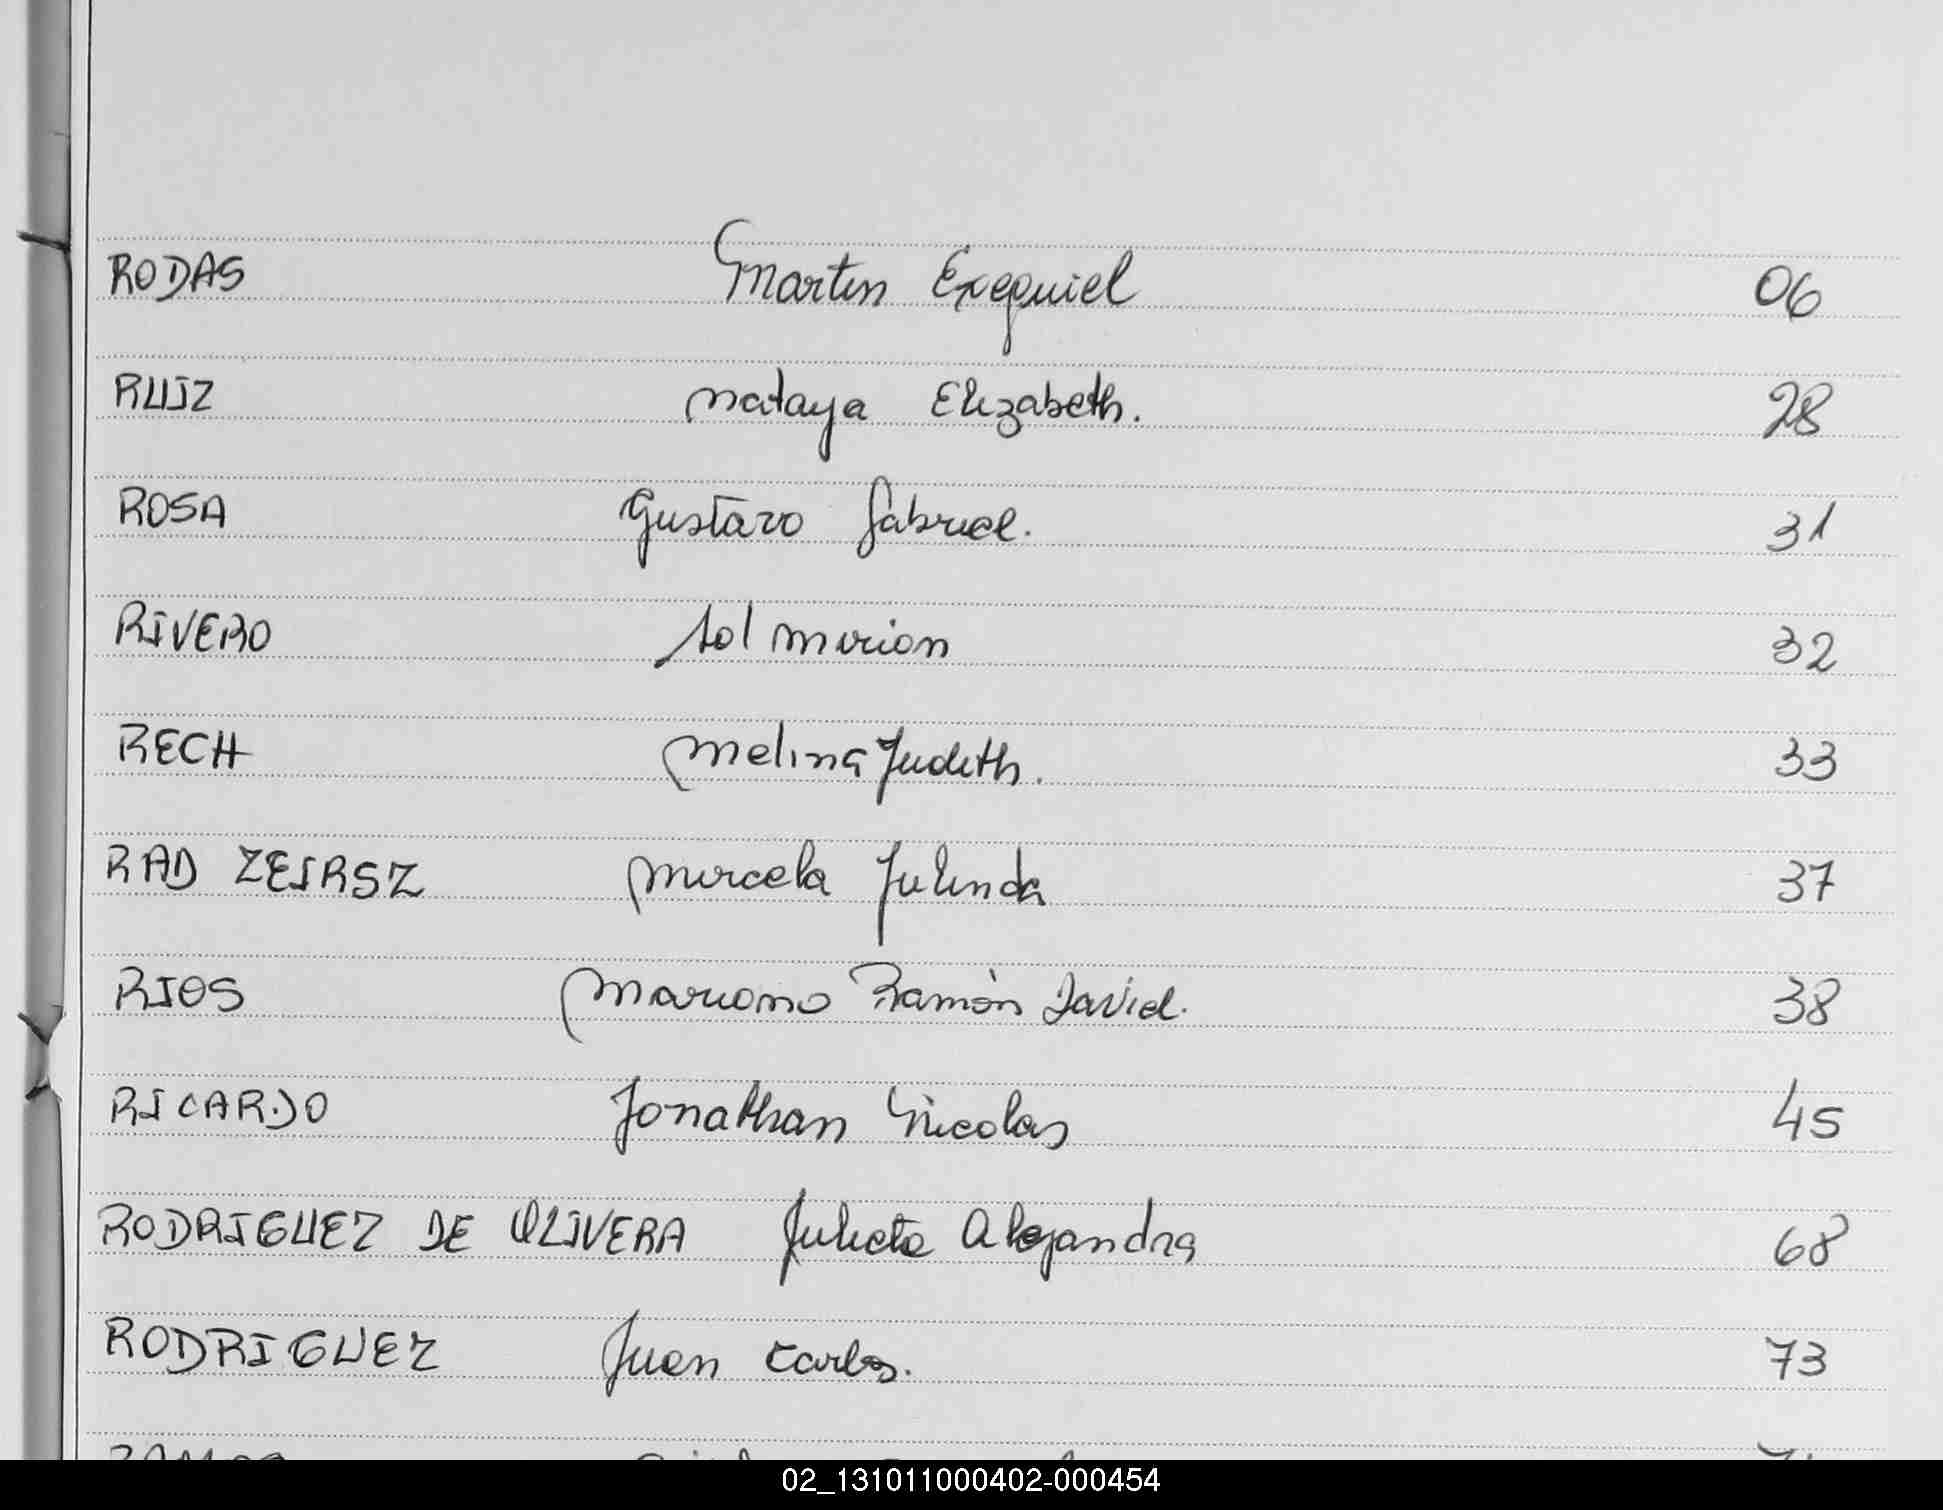 RODAS Martin Exequiel 06
RUIZ Nataya Elizabeth. 28
ROSA Gustavo Gabriel. 31
RIVERO Sol Marian 32
RECH Melina Judith. 33
RAD ZEIRSZ Marcela Julinda 37
RIOS Mariano Ramón David. 38
RICARDO Jonathan Nicolas 45
RODRIGUEZ DE OLIVERA Julieta Alejandra 68
RODRIGUEZ Juan Carlos. 73
02_131011000402-000454